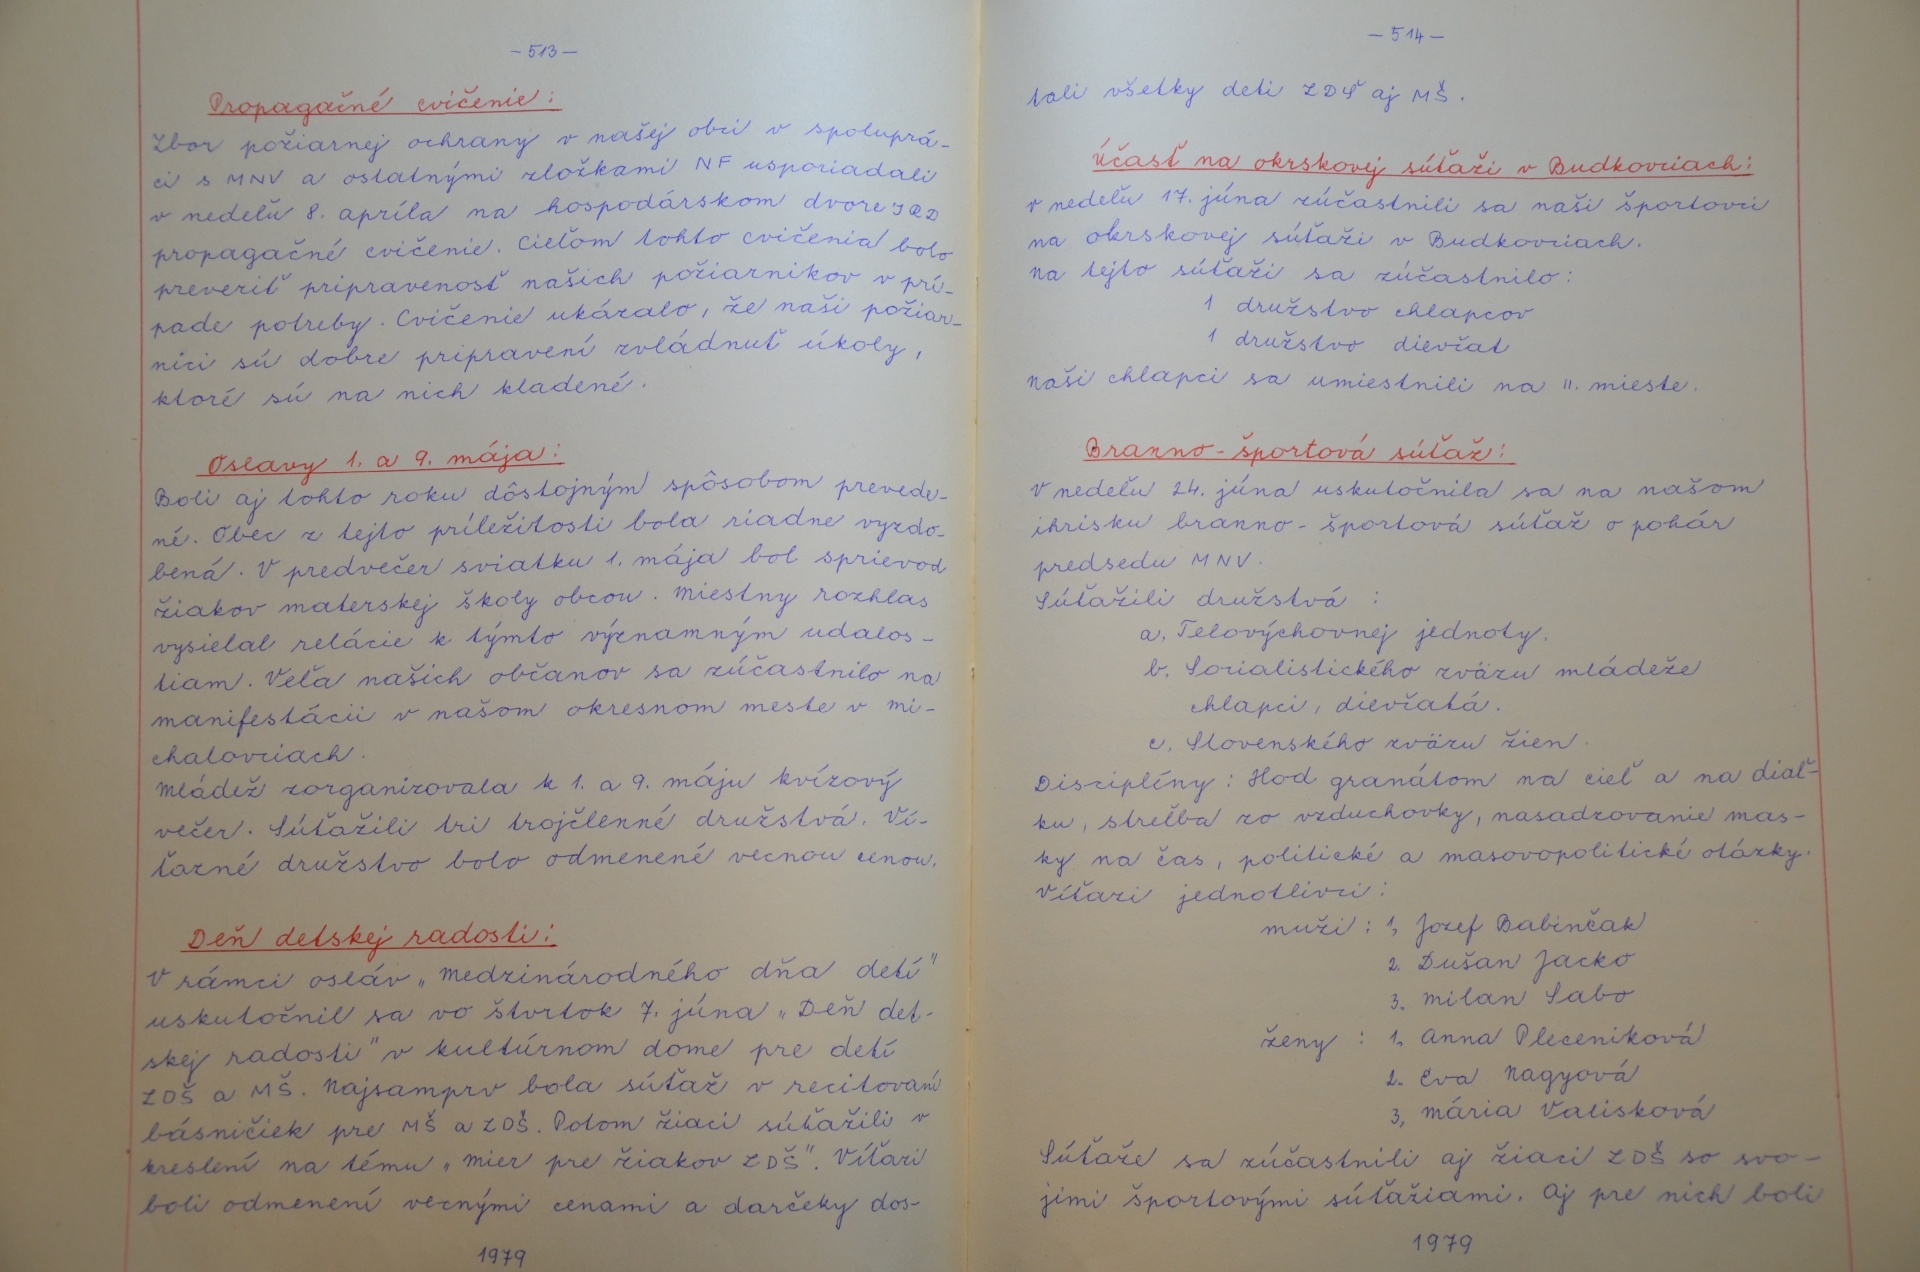 - 513 -
Propagačné cvičenie:
Zbor požiarnej ochrany v našej obci v spoluprá-
ci s MNV a ostatnými zložkami NF usporiadali
v nedeľu 8. apríla na hospodárskom dvore JRD
propagačné cvičenie. Cieľom tohto cvičenia bolo
preveriť pripravenosť našich požiarnikov v prí-
pade potreby. Cvičenie ukázalo, že naši požiar-
nici sú dobre pripravení zvládnuť úkoly,
ktoré sú na nich kladené.
Oslavy 1. a 9. mája:
Boli aj tohto roku dôstojným spôsobom prevede-
né. Obec z tejto príležitosti bola riadne vyzdo-
bená. V predvečer sviatku 1. mája bol sprievod
žiakov materskej školy obcou. Miestny rozhlas
vysielal relácie k týmto významným udalos-
tiam. Veľa našich občanov sa zúčastnilo na
manifestácii v našom okresnom meste v Mi-
chalovciach.
Mládež zorganizovala k 1. a 9. máju kvízový
večer. Súťažili tri trojčlenné družstvá. Ví-
ťazné družstvo bolo odmenené vecnou cenou.
Deň detskej radosti:
V rámci osláv „Medzinárodného dňa detí"
uskutočnil sa vo štvrtok 7. júna „Deň det-
skej radosti" v kultúrnom dome pre detí
ZDŠ a MŠ. Najsamprv bola súťaž v recitovaní
básničiek pre MŠ a ZDŠ. Potom žiaci súťažili v
kreslení na tému „Mier pre žiakov ZDŠ". Víťazi
boli odmenení vecnými cenami a darčeky dos-
1979
- 514 -
tali všetky deti ZDŠ aj MŠ.
Účasť na okrskovej súťaži v Budkovciach:
V nedeľu 17. júna zúčastnili sa naši športovci
na okrskovej súťaži v Budkovciach.
Na tejto súťaži sa zúčastnilo:
1 družstvo chlapcov
1 družstvo dievčat
Naši chlapci sa umiestnili na II. mieste.
Branno-športová súťaž:
V nedeľu 24. júna uskutočnila sa na našom
ihrisku branno-športová súťaž o pohár
predsedu MNV.
Súťažili družstvá :
a. Telovýchovnej jednoty.
b. Socialistického zväzu mládeže
chlapci, dievčatá.
c. Slovenského zväzu žien.
Disciplíny: Hod granátom na cieľ a na diaľ-
ku, streľba zo vzduchovky, nasadzovanie mas-
ky na čas, politické a masovopolitické otázky.
Víťazi jednotlivci:
muži : 1, Jozef Babinčak
2. Dušan Jacko
3, Milan Sabo
ženy : 1, Anna Pleceniková
2. Eva Nagyová
3, Mária Valisková
Súťaže sa zúčastnili aj žiaci ZDŠ so svo-
jimi športovými súťažiami. Aj pre nich boli
1979